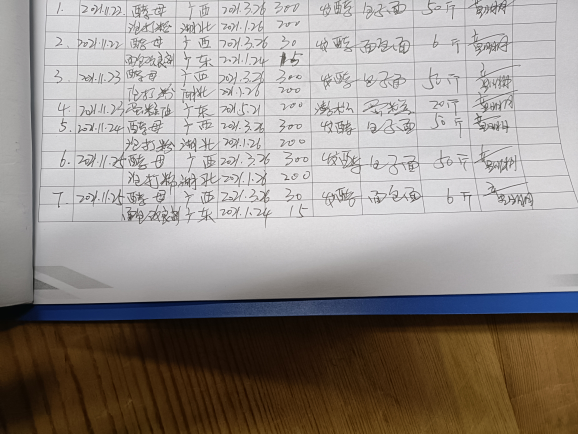 1. 2021.11.22 酵母 广西 2021.3.26 300 发酵 包子面 50斤
泡打粉 湖北 2021.1.26 200
2. 2021.11.22 酵母 广西 2021.3.26 30 发酵 面包面 6斤
面包改良剂 广东 2021.1.24 15
3. 2021.11.23 酵母 广西 2021.3.26 300 发酵 包子面 50斤
泡打粉 湖北 2021.1.26 200
4. 2021.11.23 广东 2021.5.21 200 20斤
5. 2021.11.24 酵母 广西 2021.3.26 300 发酵 包子面 50斤
泡打粉 湖北 2021.1.26 200
6. 2021.11.25 酵母 广西 2021.3.26 300 发酵 包子面 50斤
泡打粉 湖北 2021.1.26 200
7. 2021.11.25 酵母 广西 2021.3.26 30 发酵 面包面 6斤
面包改良剂 广东 2021.1.24 15